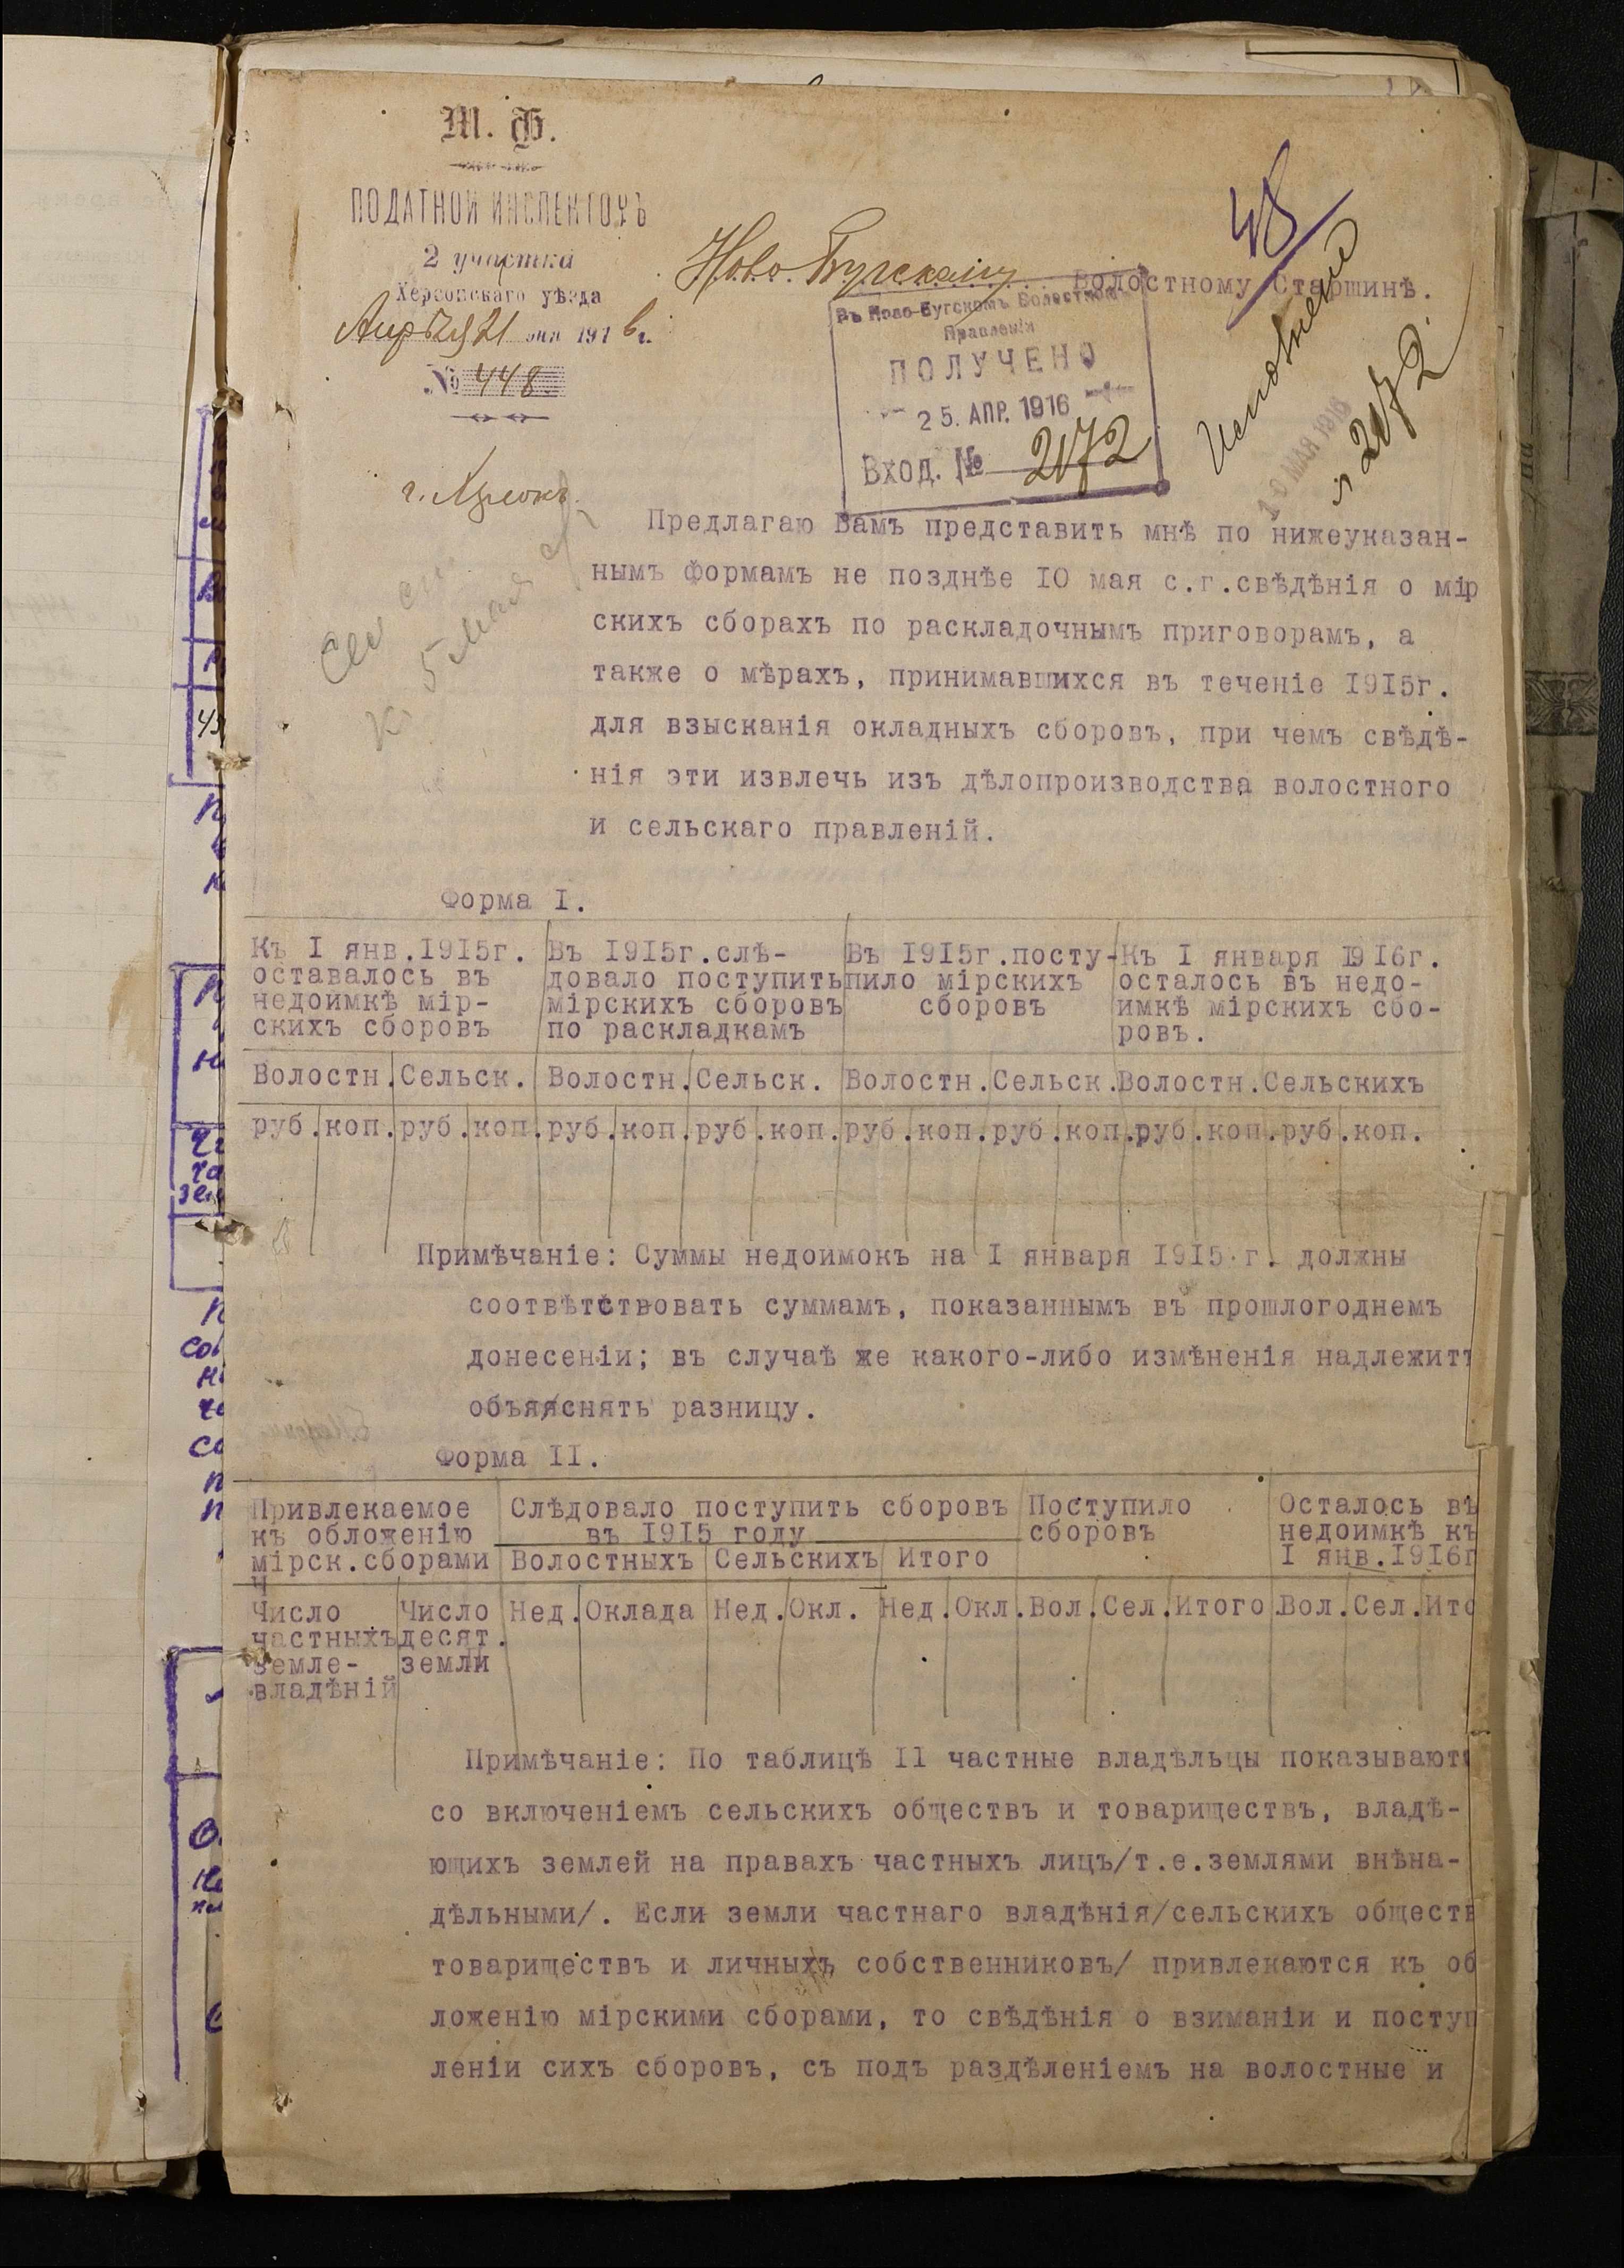 М. Ф.
ПОДАТНОЙ ИНСПЕКТОРЪ
2 участка
Херсонскаго уѣзда
Апрѣля 21 дня 1916 г.
№ 448
г. Херсонъ.
48
Ново-Бугскому Волостному Старшинѣ.
Въ Ново-Бугскомъ Волостномъ
Правленіи
ПОЛУЧЕНО
25. АПР. 1916
Вход. № 2072
Исполнено
10 МАЯ 1916
2072
5 мая
Предлагаю Вамъ представить мнѣ по нижеуказан-
нымъ формамъ не позднѣе I0 мая с.г.свѣдѣнія о мір
скихъ сборахъ по раскладочнымъ приговорамъ, а
также о мѣрахъ, принимавшихся въ теченіе I9I5г.
для взысканія окладныхъ сборовъ, при чемъ свѣдѣ-
нія эти извлечь изъ дѣлопроизводства волостного
и сельскаго правленій.
Форма I.
Къ I янв.I9I5г. Въ I9I5г.слѣ- Въ I9I5г.посту- Къ I января I9I6г.
оставалось въ довало поступить пило мірскихъ осталось въ недо-
недоимкѣ мір- мірскихъ сборовъ сборовъ имкѣ мірскихъ сбо-
скихъ сборовъ по раскладкамъ ровъ.
Волостн. Сельск. Волостн. Сельск. Волостн. Сельск. Волостн. Сельскихъ
руб. коп. руб. коп. руб. коп. руб. коп. руб. коп. руб. коп. руб. коп. руб. коп.
Примѣчаніе: Суммы недоимокъ на I января I9I5 г. должны
соотвѣтствовать суммамъ, показаннымъ въ прошлогоднемъ
донесеніи; въ случаѣ же какого-либо измѣненія надлежитъ
объяяснять разницу.
Форма II.
Привлекаемое Слѣдовало поступить сборовъ Поступило Осталось въ
къ обложенію въ I9I5 году сборовъ недоимкѣ къ
мірск.сборами Волостныхъ Сельскихъ Итого I янв.I9I6г
Число Число Нед. Оклада Нед. Окл. Нед. Окл. Вол. Сел. Итого Вол. Сел. Ито
частныхъ десят.
земле- земли
владѣній
Примѣчаніе: По таблицѣ II частные владѣльцы показывают
со включеніемъ сельскихъ обществъ и товариществъ, владѣ-
ющихъ землей на правахъ частныхъ лицъ/т.е.землями внѣна-
дѣльными/. Если земли частнаго владѣнія/сельскихъ обществ
товариществъ и личныхъ собственниковъ/ привлекаются къ об
ложенію мірскими сборами, то свѣдѣнія о взиманіи и поступ
леніи сихъ сборовъ, съ подъ раздѣленіемъ на волостные и